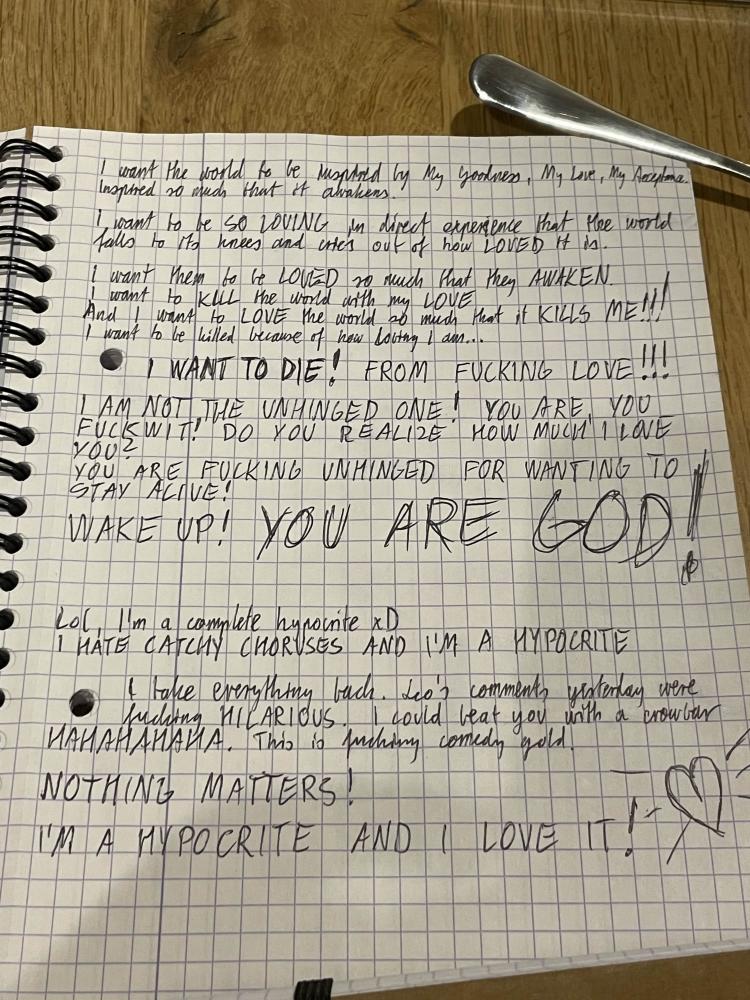 I want the world to be inspired by My Goodness, My Love, My Acceptance.
Inspired so much that it awakens.
I want to be SO LOVING in direct experience that the world
falls to its knees and cries out of how LOVED it is.
I want them to be LOVED so much that they AWAKEN.
I want to KILL the world with my LOVE
And I want to LOVE the world so much that it KILLS ME!!!
I want to be killed because of how loving I am...
I WANT TO DIE! FROM FUCKING LOVE!!!
I AM NOT THE UNHINGED ONE! YOU ARE, YOU
FUCKWIT! DO YOU REALIZE HOW MUCH I LOVE
YOU?
YOU ARE FUCKING UNHINGED FOR WANTING TO
STAY ALIVE!
WAKE UP! YOU ARE GOD!
Lol, I'm a complete hypocrite xD
I HATE CATCHY CHORUSES AND I'M A HYPOCRITE
I take everything back. Leo's comments yesterday were
fucking HILARIOUS. I could beat you with a crowbar
HAHAHAHAHA. This is fucking comedy gold.
NOTHING MATTERS!
I'M A HYPOCRITE AND I LOVE IT!